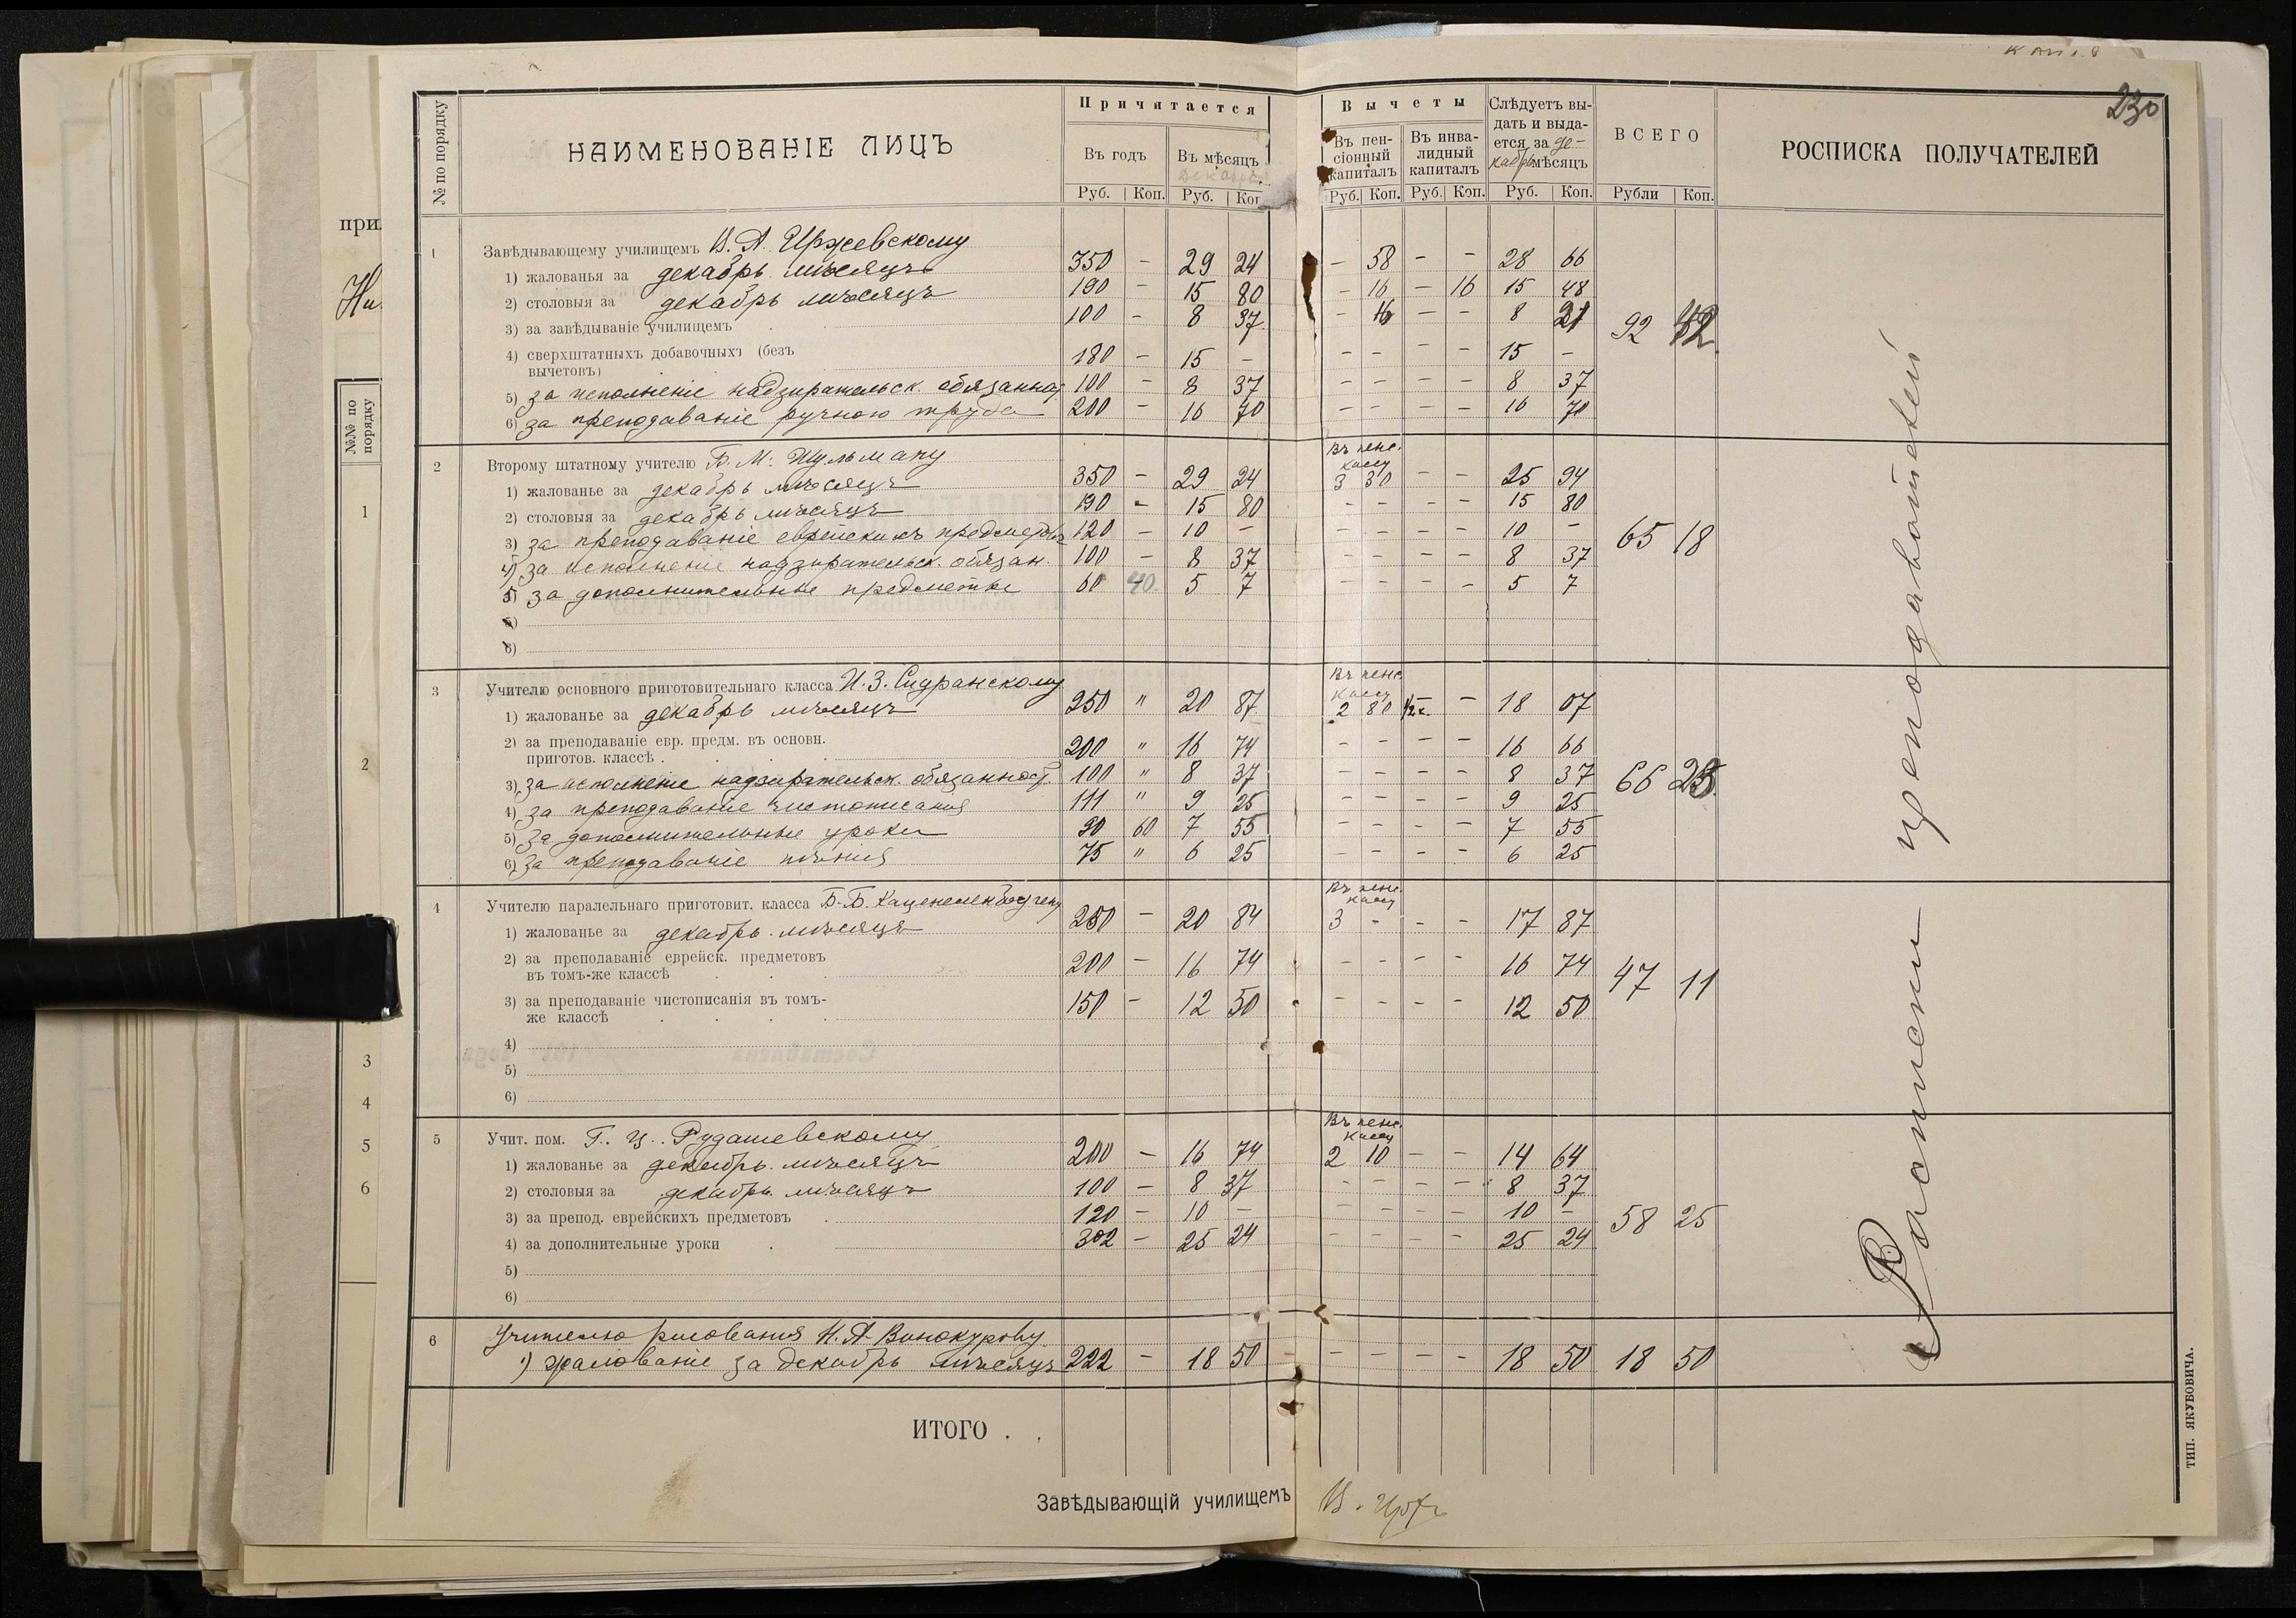 230
№ по порядку
НАИМЕНОВАНІЕ ЛИЦЪ
Причитается
Въ годъ
Въ мѣсяцъ
Руб. Коп. Руб. Коп.
Вычеты
Въ пенсіонный капиталъ
Въ инвалидный капиталъ
Слѣдуетъ выдать и выдается за декабрь мѣсяцъ
ВСЕГО
РОСПИСКА ПОЛУЧАТЕЛЕЙ
Руб. Коп. Руб. Коп. Руб. Коп. Рубли Коп.
1 Завѣдывающему училищемъ В. А. Иржевскому
1) жалованья за декабрь мѣсяцъ 350 - 29 24 - 58 - - 28 66
2) столовыя за декабрь мѣсяцъ 190 - 15 80 - 16 - 16 15 48
3) за завѣдываніе училищемъ 100 - 8 37 - 16 - - 8 21 92 42
4) сверхштатныхъ добавочныхъ (безъ
вычетовъ) 180 - 15 - - - - - 15 -
5) за исполненіе надзирательск. обязанност 100 - 8 37 - - - - 8 37
6) за преподаваніе ручного труда 200 - 16 70 - - - - 16 70
2 Второму штатному учителю Б. М. Шульману Въ пенс. кассу
1) жалованье за декабрь мѣсяцъ 350 - 29 24 3 30 - - 25 94
2) столовыя за декабрь мѣсяцъ 190 - 15 80 - - - - 15 80
3) за преподаваніе еврейскихъ предметовъ 120 - 10 - - - - - 10 - 65 18
4) за исполненіе надзирательск. обязан. 100 - 8 37 - - - - 8 37
5) за дополнительные предметы 60 40 5 7 - - - - 5 7
6)
3 Учителю основного приготовительнаго класса И. З. Сидранскому Въ пенс. кассу
1) жалованье за декабрь мѣсяцъ 250 " 20 87 2 80 1/2 к. - 18 07
2) за преподаваніе евр. предм. въ основн.
приготов. классѣ 200 " 16 74 - - - - 16 66
3) за исполненіе надзирательск. обязанност. 100 " 8 37 - - - - 8 37 66 25
4) за преподаваніе чистописанія 111 " 9 25 - - - - 9 25
5) за дополнительные уроки 90 60 7 55 - - - - 7 55
6) за преподаваніе пѣнія 75 " 6 25 - - - - 6 25
4 Учителю паралельнаго приготовит. класса Б. Б. Каценеленбогену Въ пенс. кассу
1) жалованье за декабрь мѣсяцъ 250 - 20 84 3 - - - 17 87
2) за преподаваніе еврейск. предметовъ
въ томъ-же классѣ 200 - 16 74 - - - - 16 74 47 11
3) за преподаваніе чистописанія въ томъ-
же классѣ 150 - 12 50 - - - - 12 50
4)
5)
6)
5 Учит. пом. Г. Ц. Рудашевскому Въ пенс. кассу
1) жалованье за декабрь мѣсяцъ 200 - 16 74 2 10 - - 14 64
2) столовыя за декабрь мѣсяцъ 100 - 8 37 - - - - 8 37
3) за препод. еврейскихъ предметовъ 120 - 10 - - - - - 10 - 58 25
4) за дополнительные уроки 302 - 25 24 - - - - 25 24
5)
6)
6 Учителю рисованія Н. А. Винокурову
1) жалованіе за декабрь мѣсяцъ 222 - 18 50 - - - - 18 50 18 50
ИТОГО . .
Завѣдывающій училищемъ
Росписки преподавателей
ТИП. ЯКУБОВИЧА.
при
№№ по порядку
1
2
3
4
5
6